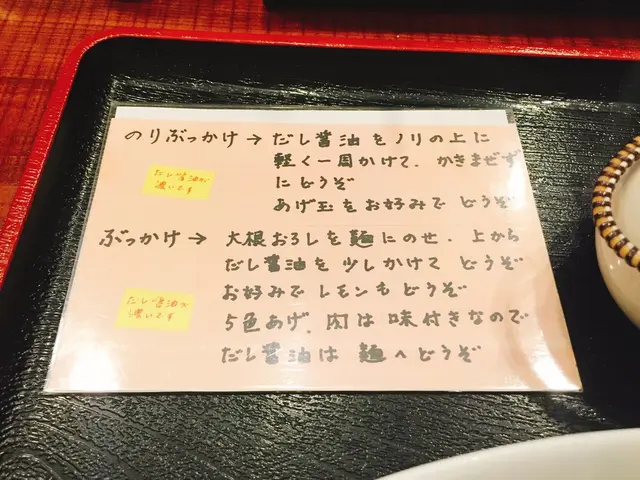 のりぶっかけ→だし醤油をノリの上に
軽く一周かけて、かきまぜず
にどうぞ
だし醤油が
濃いです
あげ玉をお好みでどうぞ
ぶっかけ→大根おろしを麺にのせ、上から
だし醤油を少しかけてどうぞ
お好みでレモンもどうぞ
だし醤油が
濃いです
5色あげ、肉は味付きなので
だし醤油は麺へどうぞ